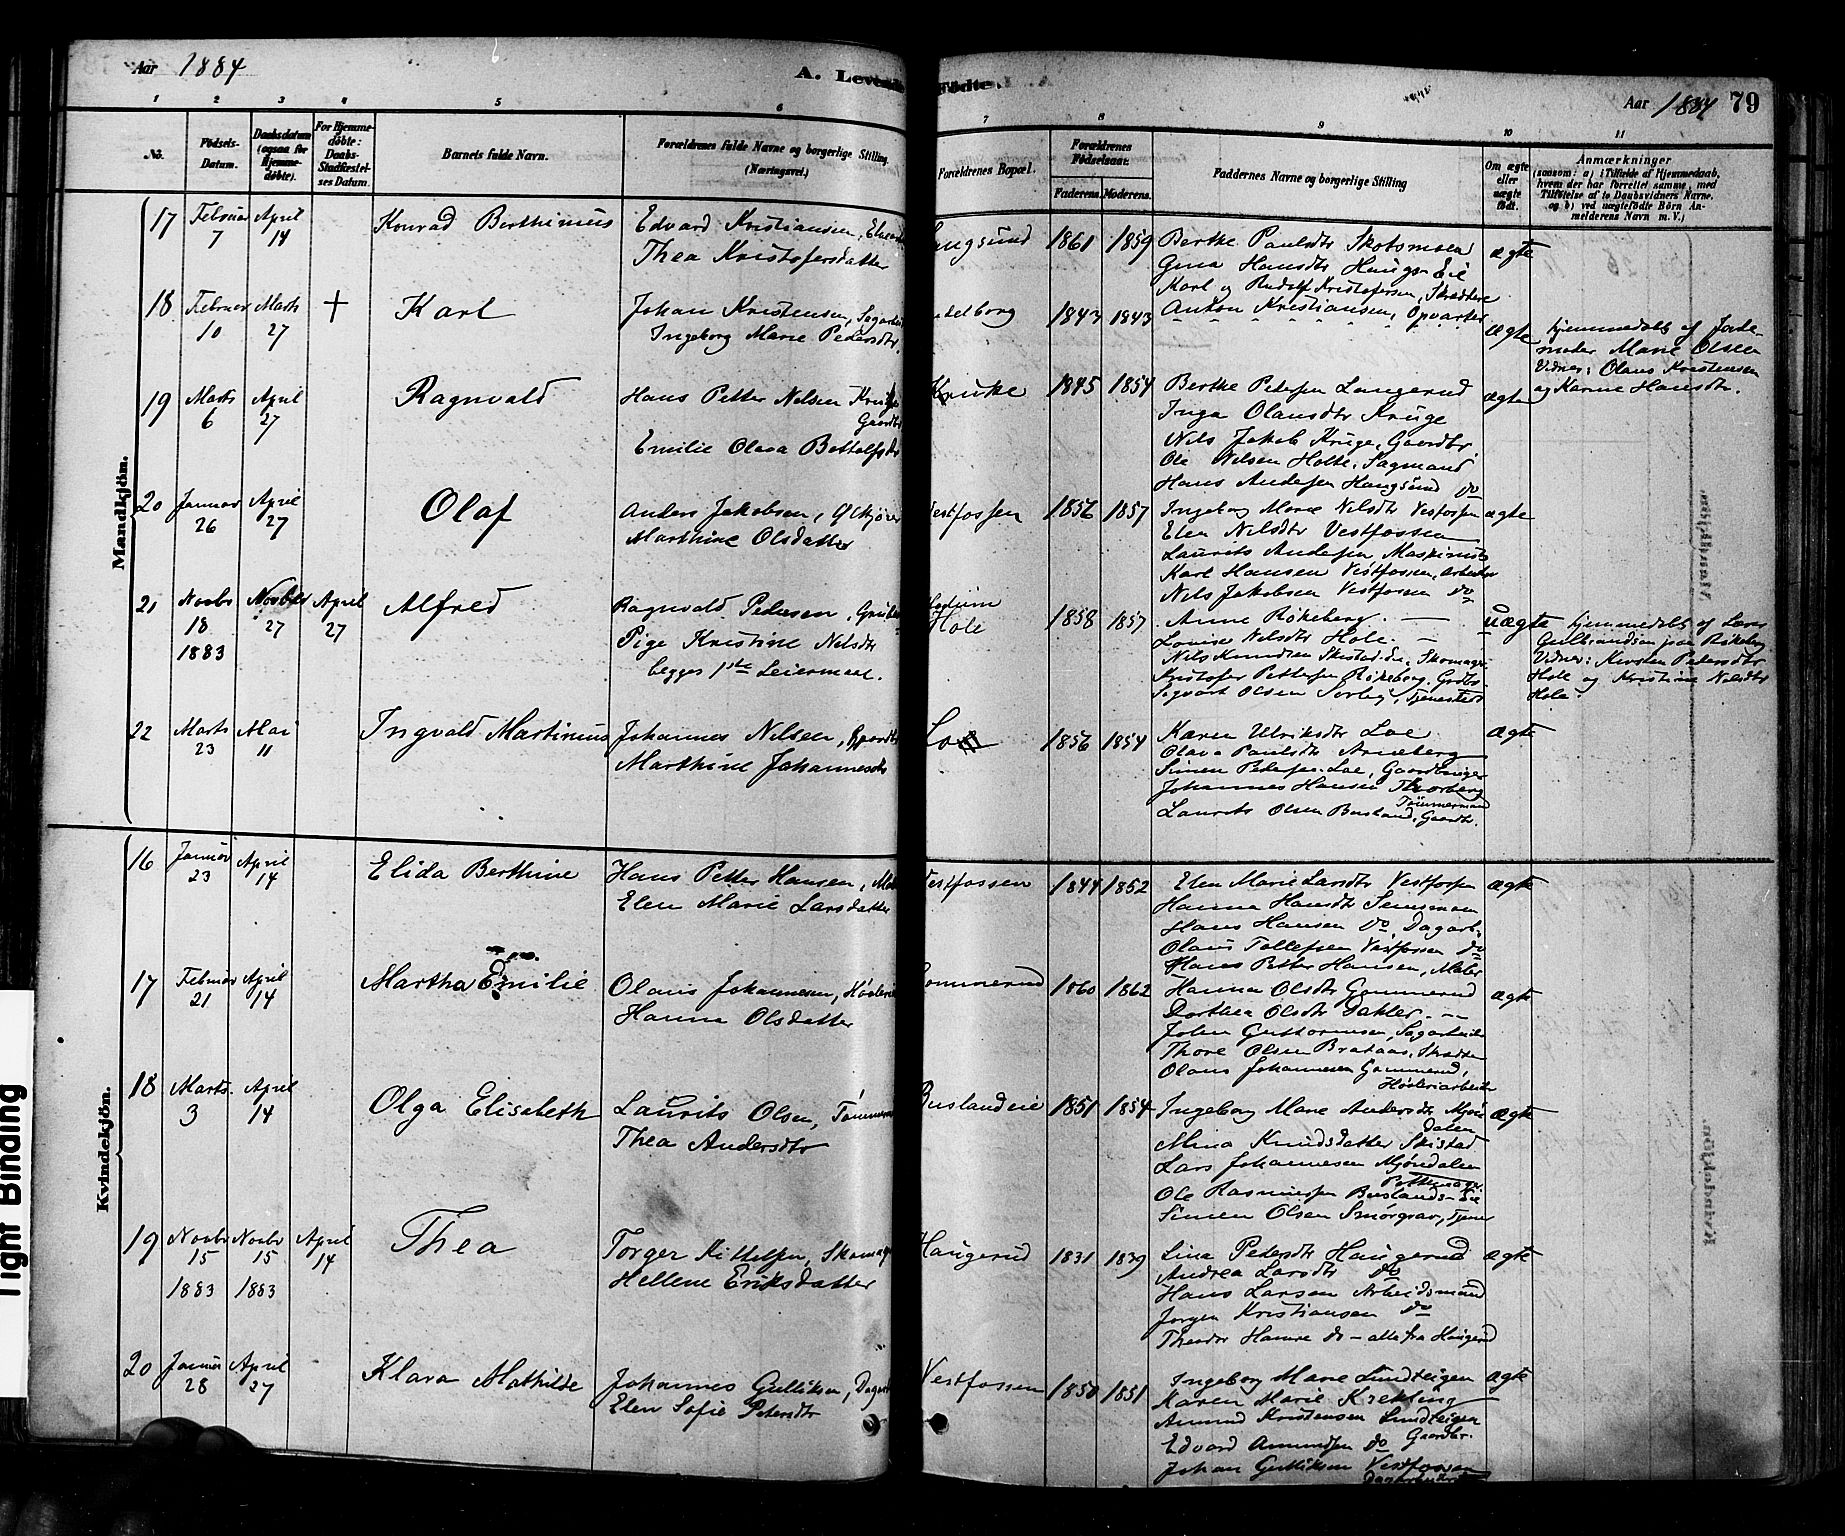 Aar 1884
A. Levende Fødte.
Aar 1884 79
1 2 3 4 5 6 7 8 9 10 11
No.
Fødsels-Datum.
Daabsdatum (ogsaa for Hjemme-døbte).
For Hjemme-døbte: Daabs-Stadfæstel-ses Datum.
Barnets fulde Navn.
Forældrenes fulde Navne og borgerlige Stilling. (Næringsvei.)
Forældrenes Bopæl.
Forældrenes Fødselsaar.
Faderens. Moderens.
Faddernes Navne og borgerlige Stilling
Om ægte eller uægte født.
Anmærkninger
(saasom: a) i Tilfælde af Hjemmedaab, hvem der har forrettet samme, med Tilføielse af to Daabsvidners Navne, og b) ved uægtefødte Børn An-melderens Navn m. V.)
Mandkjön.
17 Februar 7 April 14 Konrad Berthinius
Edvard Kristiansen,
Thea Kristofersdatter
1861 1859
Berthe Paulsdtr Skotsmoen
Gina Hansdtr Haugs-Eie
Karl og Rudolf Kristofersen, Skræddere
Anton Kristiansen, Opvarter
ægte
18 Februar 10 Marts 27 + Karl
Johan Kristensen, Sagarb
Ingeborg Marie Pedersdtr.
1843 1843
ægte
Hjemmedøbt af Jorde-
moder Marie Olsen
Vidner: Olaus Kristensen
og Karine Hansdtr.
19 Marts 6 April 27 Ragnvald
Hans Petter Nilsen Kruke
Gaardbr
Emilie Olava Bottolfsdtr
Kruke 1845 1854
Berthe Petersen Langerud
Inga Olausdtr Kruge
Nils Jakob Kruge, Gaardbr.
Ole Nilsen Holte, Sagmand
Hans Andersen Haugsund do
ægte
20 Januar 26 April 27 Olaf
Anders Jakobsen,
Marthine Olsdatter
Vestfossen 1856 1857
Ingeborg Marie Nilsdtr Vestfossen
Elen Nilsdtr Vestfossen
Laurits Andersen Maskinist
Karl Hansen Vestfossen, Arbeider
Nils Jakobsen Vestfossen do
ægte
21 Novbr 18 1883 Novbr 27 April 27 Alfred
Ragnvald Pedersen,
Pige Kristine Nilsdtr
begges 1ste Leiermaal.
Modum
Hole 1858 1857
Anne Røkeberg
Lovise Nilsdtr Hole
Nils Knudsen Skistad-eie, Skomager
Kristofer Pettersen Røkeberg, Grdbr.
Sigvart Olsen Sorby, Tjenestedr
uægte
Hjemmedøbt af Lars
Gulbrandsen paa Røkeberg
Vidner: Kirsten Pedersdtr
Hole og Kristine Nilsdtr
Hole.
22 Marts 23 Mai 11 Ingvald Martinius
Johannes Nilsen, Gaardbr
Marthine Johannesdtr
1856 1854
Karen Ulriksdtr Loe
Olava Paulsdtr Arneberg
Simen Pedersen Loe, Gaardbruger
Johannes Hansen Thorberg
Tømmermand
Laurits Olsen Busland, Gaardbr.
ægte
Kvindekjön.
16 Januar 23 April 14 Elida Berthine
Hans Petter Hansen,
Elen Marie Larsdatter
Vestfossen 1844 1852
Elen Marie Larsdtr Vestfossen
Hanna Hansdtr Semsmoen
Hans Hansen do, Dagarb.
Olaus Tollefsen Vestfossen do
Hans Petter Hansen, Maler
ægte
17 Februar 21 April 14 Martha Emilie
Olaus Johannesen, Høvleri
Hanna Olsdatter
Gommerud 1860 1862
Hanna Olsdtr Gommerud
Dorthea Olsdtr
John Guttormsen, Sagarbeider
Thore Olsen Brataas, Skrædder
Olaus Johannesen Gommerud,
Høvleriarbeider
ægte
18 Marts 3 April 14 Olga Elisabeth
Laurits Olsen, Tømmerm
Thea Andersdtr
Buslandeie 1851 1854
Ingeborg Marie Andersdtr Mjøn-
dalen
Mina Knudsdatter Skistad
Lars Johannesen Mjøndalen
Pottemager
Ole Rasmussen Buslands-Eie
Simen Olsen Smørgrav, Tjener
ægte
19 Novbr 15 1883 Novbr 15 1883 April 14 Thea
Torger Kittelsen, Skomag
Hellene Eriksdatter
Haugerud 1831 1839
Lina Pedersdtr Haugerud
Andrea Larsdtr do
Hans Larsen Arbeidsmand
Jørgen Kristiansen do
Theodor Hansen do - alle fra Haugerud
ægte
20 Januar 28 April 27 Klara Mathilde
Johannes Gulliksen, Dagar
Elen Sofie Petersdtr
Vestfossen 1850 1851
Ingeborg Marie Lundteigen
Karen Marie Krekling
Amund Kristensen Lundteigen
Gaardbr.
Edvard Amundsen do
Johan Gulliksen Vestfossen
Dagarbeider
ægte
Tight Binding